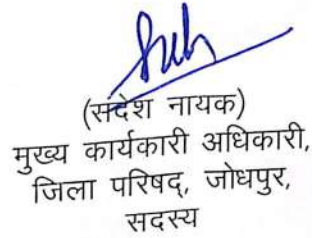 (संदेश नायक)
मुख्य कार्यकारी अधिकारी,
जिला परिषद्, जोधपुर,
सदस्य